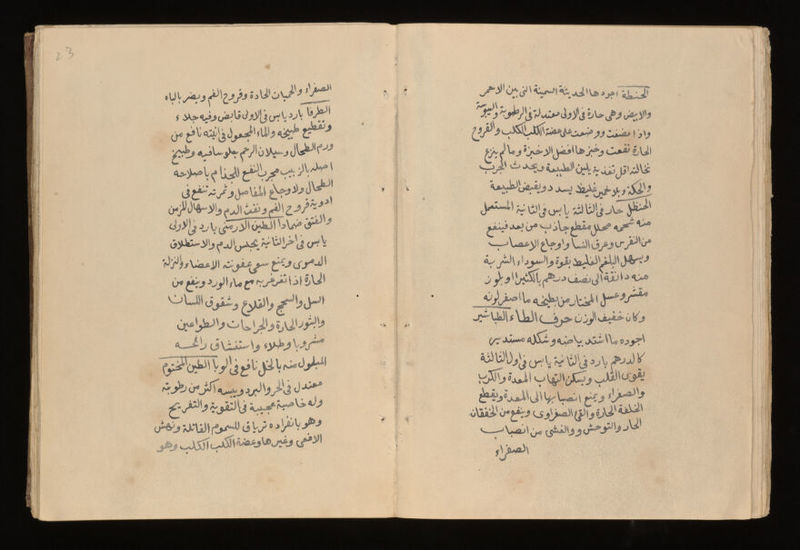 الحنطة اجودها الحديثة السمينة التي بين الاحمر
والابيض وهى حارة في الاولى معتدلة في الرطوبة واليبوسة
واذا مضغت ووضعت على عضة الكلب الكلب والقروح
الحارة نفعت وخبزها افضل الاخبزة وما لم ينزع
نخالته اقل تغذية يلين الطبيعة ويحدث الجرب
والحكة وبلا خمير غليظ يسدد ويقبض الطبيعة
الحنظل حار في الثالثة يابس في الثانية المستعمل
منه شحمه محلل مقطع جاذب من بعد فينفع
من النقرس وعرق النسا واوجاع الاعصاب
ويسهل البلغم الغليظ بقوة والسوداء الشربة
منه دانقة الى نصف درهم بالكثيرا او بلوز
مقشر وعسل المختار من بطيخه ما اصفر لونه
وكان خفيف الوزن حرف الطاء الطباشير
اجوده ما اشتد بياضه وشكله مستدير
كالدرهم بارد في الثانية يابس في اول الثالثة
يقوى القلب ويسكن التهاب المعدة والكرب
والصفراء ويمنع انصبابها الى المعدة ويقطع
الخلفة الحارة والقي الصفراوى وينفع من الخفقان
الحار والتوحش والغشى من انصباب
الصفراء
23
الصفراء والحميات الحادة وقروح الفم ويضر بالباه
الطرفا بارد يابس في الاولى قابض وفيه جلاء
وتقطيع طبيخه والماء المجعول في انيته نافع من
ورم الطحال وسيلان الرحم جلوسا فيه وطبيخ
اصله بالزبيب مجرب النفع للجذام باصلاحه
الطحال ولاوجاع المفاصل وثمرته تنفع في
ادوية قروح الفم ونفث الدم والاسهال المزمن
والفتق ضمادا الطين الارمنى بارد في الاولى
يابس في اخر الثانية يحبس الدم والاستطلاق
الدموى ويمنع سعى عفونته الاعضاء والنزلة
الحارة اذا تغرغر به مع ماء الورد وينفع من
السل والسحج والقلاع وشقوق اللسان
والبثور الحارة والجراحات والطواعين
مشروبا وطلاء واستنشاق رائحته
المبلول منه بالخل نافع في الوبا الطين المختوم
معتدل في الحر والبرد ويبسه اكثر من رطوبته
وله خاصية عجيبة في التقوية والتفريح
وهو بانفراده ترياق للسموم القاتلة ونهش
الافعى وغيرها وعضة الكلب الكلب وهو